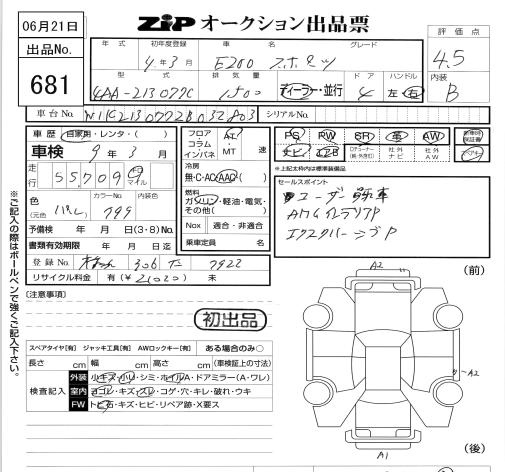 06月21日
ZiP オークション出品票
出品No.
681
評価点
4.5
内装
B
年式 初年度登録 車名 グレード
4年3月 E200 スポーツ
型式 排気量 ドア ハンドル
4AA-213077C 1500 ディーラー・並行 4 左 右
車台No. シリアルNo.
車歴 自家用・レンタ・( )
車検 9年3月
走行 55,709 キロ マイル
色 (元色 ) カラーNo. 内装色
799
予備検 年 月 日(3・8)No.
書類有効期限 年 月 日迄
登録No. 306 7922
リサイクル料金 有(¥ ) 未
フロア・コラム インパネ AT・MT 速
冷房
無・C・AC・AAC・( )
燃料
ガソリン・軽油・電気・その他( )
Nox 適合・非適合
乗車定員 名
PS PW SR 革 AW 新車時保証書
ナビ エアB Dチューナー(純・外含む) 社外ナビ 社外AW
※上記太枠内は標準装備品
セールスポイント
ユーザー買取車
AMGインテリアP
エクスクルーシブP
※ご記入の際はボールペンで強くご記入下さい。
(注意事項)
初出品
スペアタイヤ[有] ジャッキ工具[有] AWロックキー[有] ある場合のみ○
長さ cm 幅 cm 高さ cm (車検証上の寸法)
検査記入
外装 小キズ・小ヘ・シミ・ホイルA・ドアミラー(A・ワレ)
室内 ヨゴレ・キズ・スレ・コゲ・穴・キレ・破れ・ウキ
FW トビ石・キズ・ヒビ・リペア跡・X要ス
(前)
A2
A2
A1
(後)